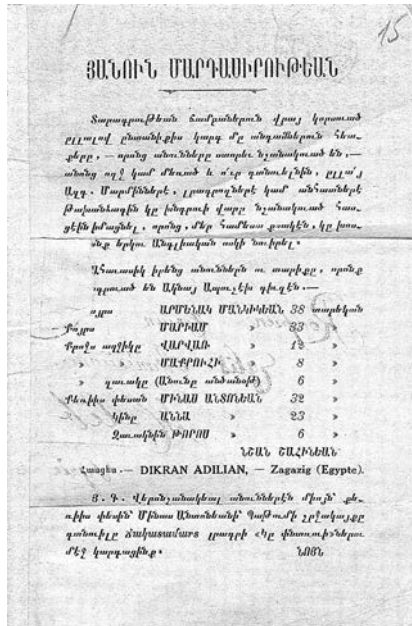 15
ՅԱՆՈՒՆ ՄԱՐԴԱՍԻՐՈՒԹԵԱՆ
Տարագրութեան ճամբաներուն վրայ կորսուած
ըլլալով ընտանիքիս կարգ մը անդամներուն հետ-
քերը, — որոնց անունները ստորեւ նշանակուած են,—
անոնց ողջ կամ մեռած և ո՛ւր գտնուելնին, ըլլա՛յ
Ազգ. Մարմիններէ, լրագրողներէ կամ անհատներէ
թախանձագին կը խնդրուի վարը նշանակուած հաս-
ցէին իմացնել, որոնց, մեր համեստ քսակէն, կը խոս-
անք երկու Անգլիական ոսկի նուիրել։
Ահաւասիկ իրենց անուններն ու տարիքը, որոնք
գրուած են Ակնայ Ապուչէխ գիւղէն.—
այրս ԱՐՄԵՆԱԿ ՄԱՆԿԻԿԵԱՆ 38 տարեկան
Քոյրս ՄԱՐԻԱՄ » 33 »
Քրոջս աղջիկը ՎԱՐՎԱՌ » 12 »
» » ՄԱՔՐՈՒՀԻ » 8 »
» զաւակը (Անունը անծանօթ) 6 »
Քեռիիս փեսան ՄԻՆԱՍ ԱՆՏՈՆԵԱՆ 32 »
Կինը ԱՆՆԱ » 23 »
Զաւակնին ԹՈՐՈՍ » 6 »
ՆՇԱՆ ՇԱՀԻՆԵԱՆ
Հասցես .— DIKRAN ADILIAN, — Zagazig (Egypte).
Յ. Գ. Վերոնշանակեալ անուններէն միայն՝ քե-
ռիիս փեսին՝ Մինաս Անտոնեանի՝ Պաթումի շրջակայքը
գտնուիլը Ճակատամարտ լրագրի «Կը փնտռուի»ներու
մէջ կարդացինք։ ՆՈՅՆ